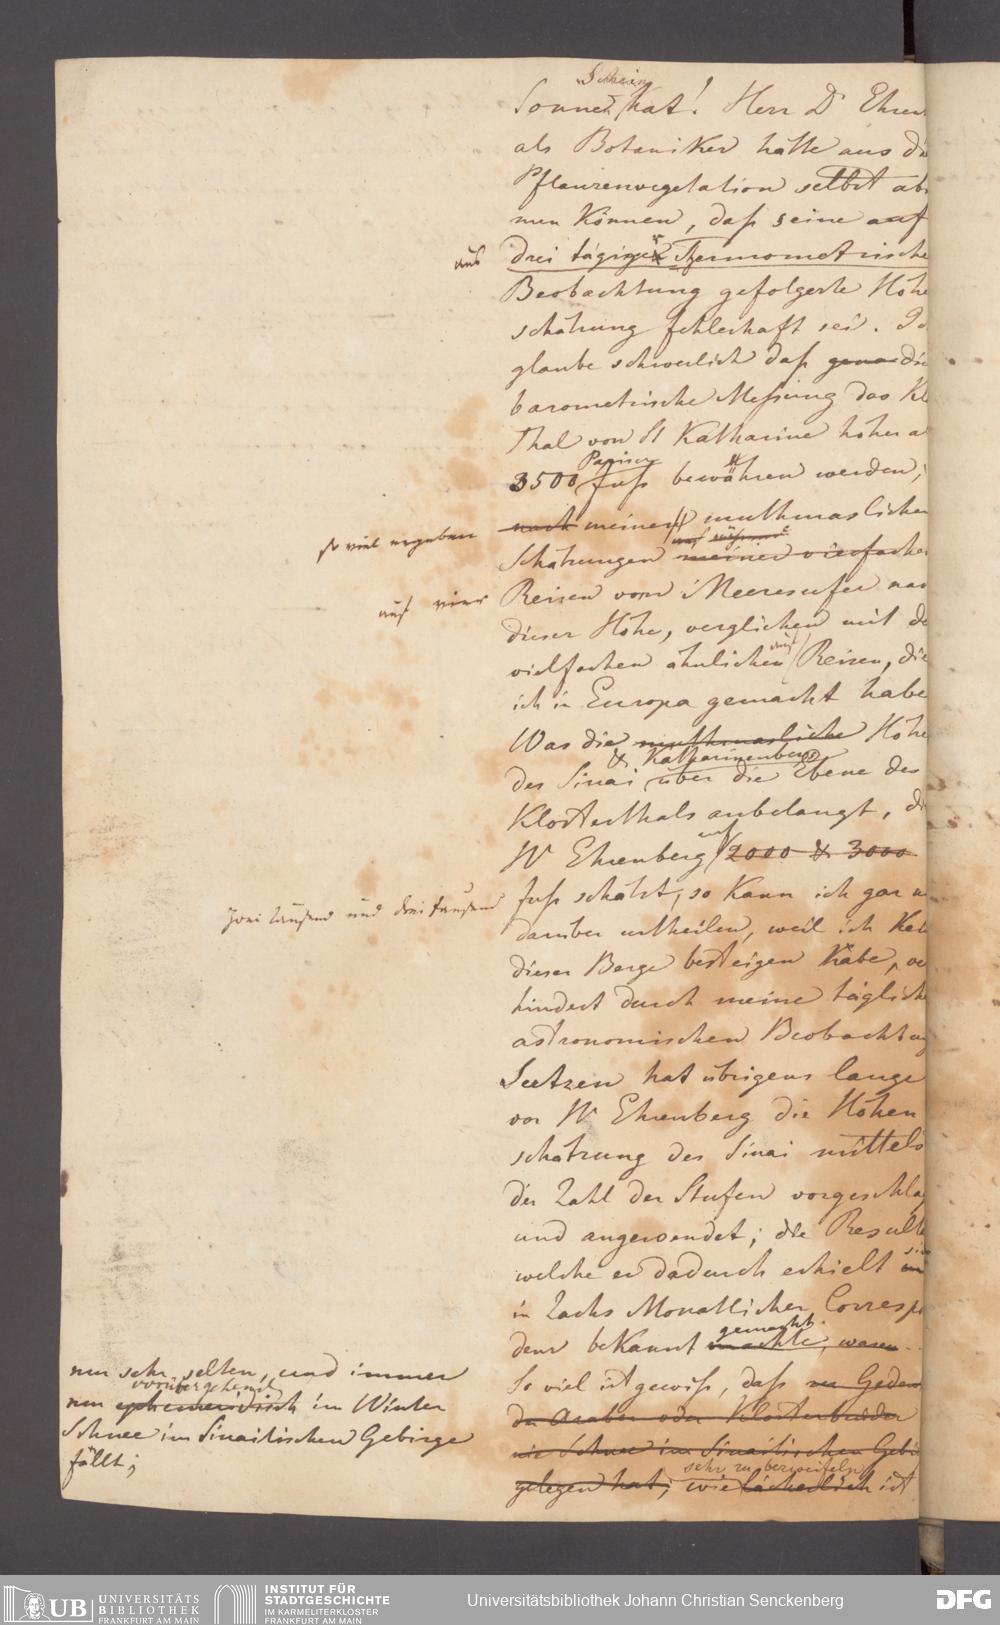 Schein
Sonnen hat! Herr Dr Ehren
als Botaniker hätte aus di
Pflanzenvegetation selbst ab
men können, daß seine auf
aus drei tägiger Thermometrische
Beobachtung gefolgerte Höhe
schätzung fehlerhaft sei. Ic
glaube schwerlich daß genau die
barometrische Messung das Kl
Thal von St Katharine höher a
Pariser
3500 fuß bewähren werden;
so viel ergeben
nach meinen muthmaslichen
Schätzungen meiner vierfachen
auf vier Reisen vom Meeresufer nac
dieser Höhe, verglichen mit de
vielfachen ähnlichen Reisen, die
ich in Europa gemacht habe
Was die muthmasliche Höhe
& Katharinenberg
des Sinai über die Ebene des
Klosterthals anbelangt, di
auf
Hr Ehrenberg 2000 & 3000
zwei tausend und drei tausend fuß schätzt, so kann ich gar n
darüber urtheilen, weil ich Kei
dieser Berge besteigen habe, ve
hindert durch meine täglich
astronomischen Beobachtung
Seetzen hat übrigens lange
vor Hr Ehrenberg die Höhen
schätzung des Sinai mittels
der Zahl der Stufen vorgeschlag
und angewendet; die Result
welche er dadurch erhielt
in Zachs Monatlicher Corresp
gemacht
denz bekannt machte, waren
So viel ist gewiß, daß
der Araber oder Klosterbrüder
nie Schnee im Sinaitischen Gebi
sehr zu bezweifeln
gelegen hat; wie lächerlich ist
nur sehr selten, und immer
vorübergehend
nur ephemeridisch im Winter
Schnee im Sinaitischen Gebirge
fällt;
UB UNIVERSITÄTS BIBLIOTHEK FRANKFURT AM MAIN
INSTITUT FÜR STADTGESCHICHTE IM KARMELITERKLOSTER FRANKFURT AM MAIN
Universitätsbibliothek Johann Christian Senckenberg
DFG